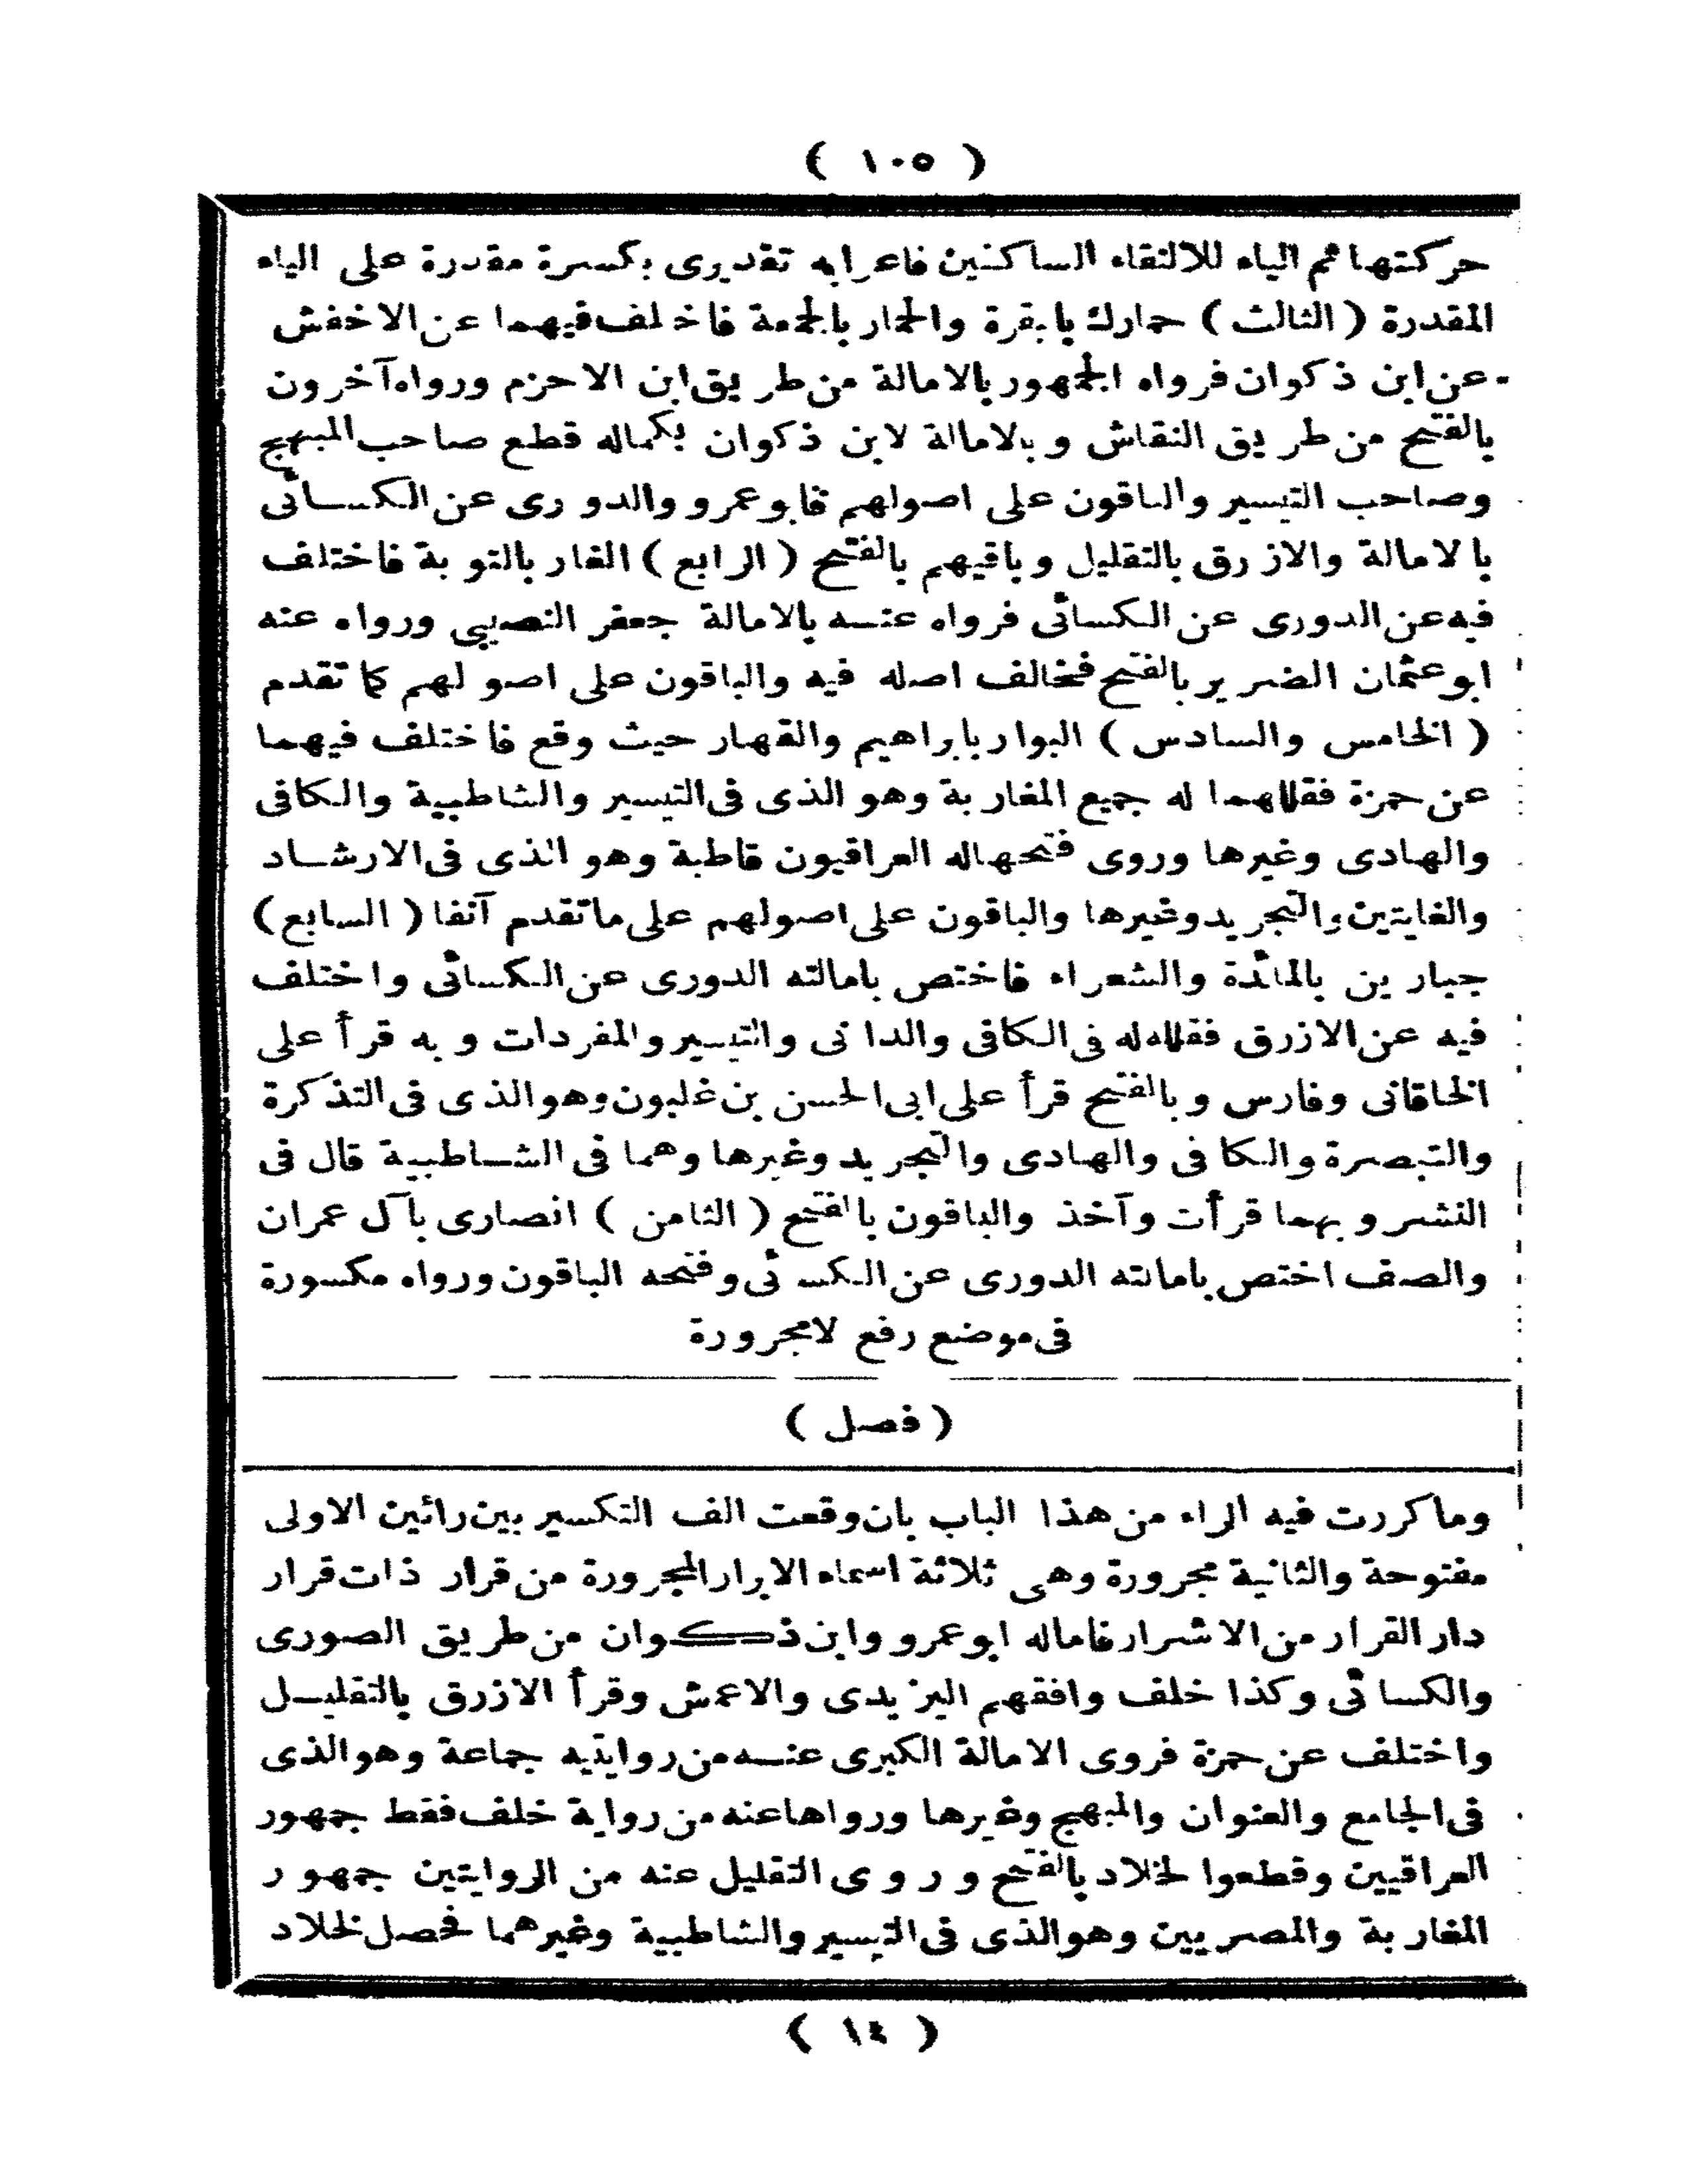 ( ١٠٥ )
حركتها ثم الياء للالتقاء الساكنين فاعرابه تقديرى بكسرة مقدرة على الياء
المقدرة ( الثالث ) حمارك بابقرة والحمار بالجمعة فاختلف فيهما عن الاخفش
عن ابن ذكوان فرواه الجمهور بالامالة من طريق ابن الاحزم ورواه آخرون
بالفتح من طريق النقاش وبالامالة لابن ذكوان بكماله قطع صاحب المبهج
وصاحب التيسير والباقون على اصولهم فابو عمرو والدورى عن الكسائى
بالامالة والازرق بالتقليل وباقيهم بالفتح ( الرابع ) الغار بالتوبة فاختلف
فيه عن الدورى عن الكسائى فرواه عنه بالامالة جعفر النصيبى ورواه عنه
ابو عثمان الضرير بالفتح فخالف اصله فيه والباقون على اصولهم كما تقدم
( الخامس والسادس ) البوار بابراهيم والقهار حيث وقع فاختلف فيهما
عن حمزة فقللهما له جميع المغاربة وهو الذى فى التيسير والشاطبية والكافى
والهادى وغيرها وروى فتحهاله العراقيون قاطبة وهو الذى فى الارشاد
والغايتين والتجريد وغيرها والباقون على اصولهم على ماتقدم آنفا ( السابع )
جبارين بالمائدة والشعراء فاختص بامالته الدورى عن الكسائى واختلف
فيه عن الازرق فقلله له فى الكافى والدانى والتيسير والمفردات وبه قرأ على
الخاقانى وفارس وبالفتح قرأ على ابى الحسن بن غلبون وهو الذى فى التذكرة
والتبصرة والكافى والهادى والتجريد وغيرها وهما فى الشاطبية قال فى
النشر وبهما قرأت وآخذ والباقون بالفتح ( الثامن ) انصارى بآل عمران
والصف اختص بامالته الدورى عن الكسئى وفتحه الباقون ورواه مكسورة
فى موضع رفع لامجرورة
( فصل )
وماكررت فيه الراء من هذا الباب بان وقعت الف التكسير بين رائين الاولى
مفتوحة والثانية مجرورة وهى ثلاثة اسماء الابرار المجرورة من قرار ذات قرار
دار القرار من الاشرار فاماله ابو عمرو وابن ذكوان من طريق الصورى
والكسائى وكذا خلف وافقهم اليزيدى والاعمش وقرأ الازرق بالتقليل
واختلف عن حمزة فروى الامالة الكبرى عنه من روايتيه جماعة وهو الذى
فى الجامع والعنوان والمبهج وغيرها ورواها عنه من رواية خلف فقط جمهور
العراقيين وقطعوا لخلاد بالفتح وروى التقليل عنه من الروايتين جمهور
المغاربة والمصريين وهو الذى فى التيسير والشاطبية وغيرهما فحصل لخلاد
( ١٤ )